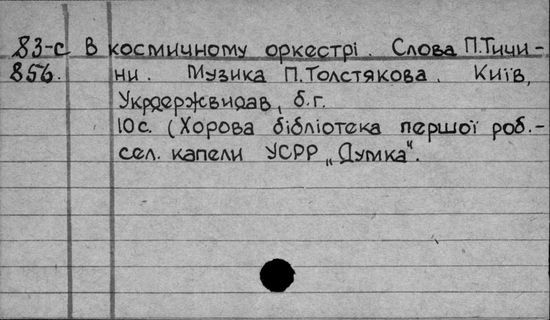 83-с В космичному оркестрі. Слова П.Тичи-
856. ни. Музика П.Толстякова. Київ,
Укрдержвидав, б.г.
10с. (Хорова бібліотека першої роб.-
сел. капели УСРР „Думка".